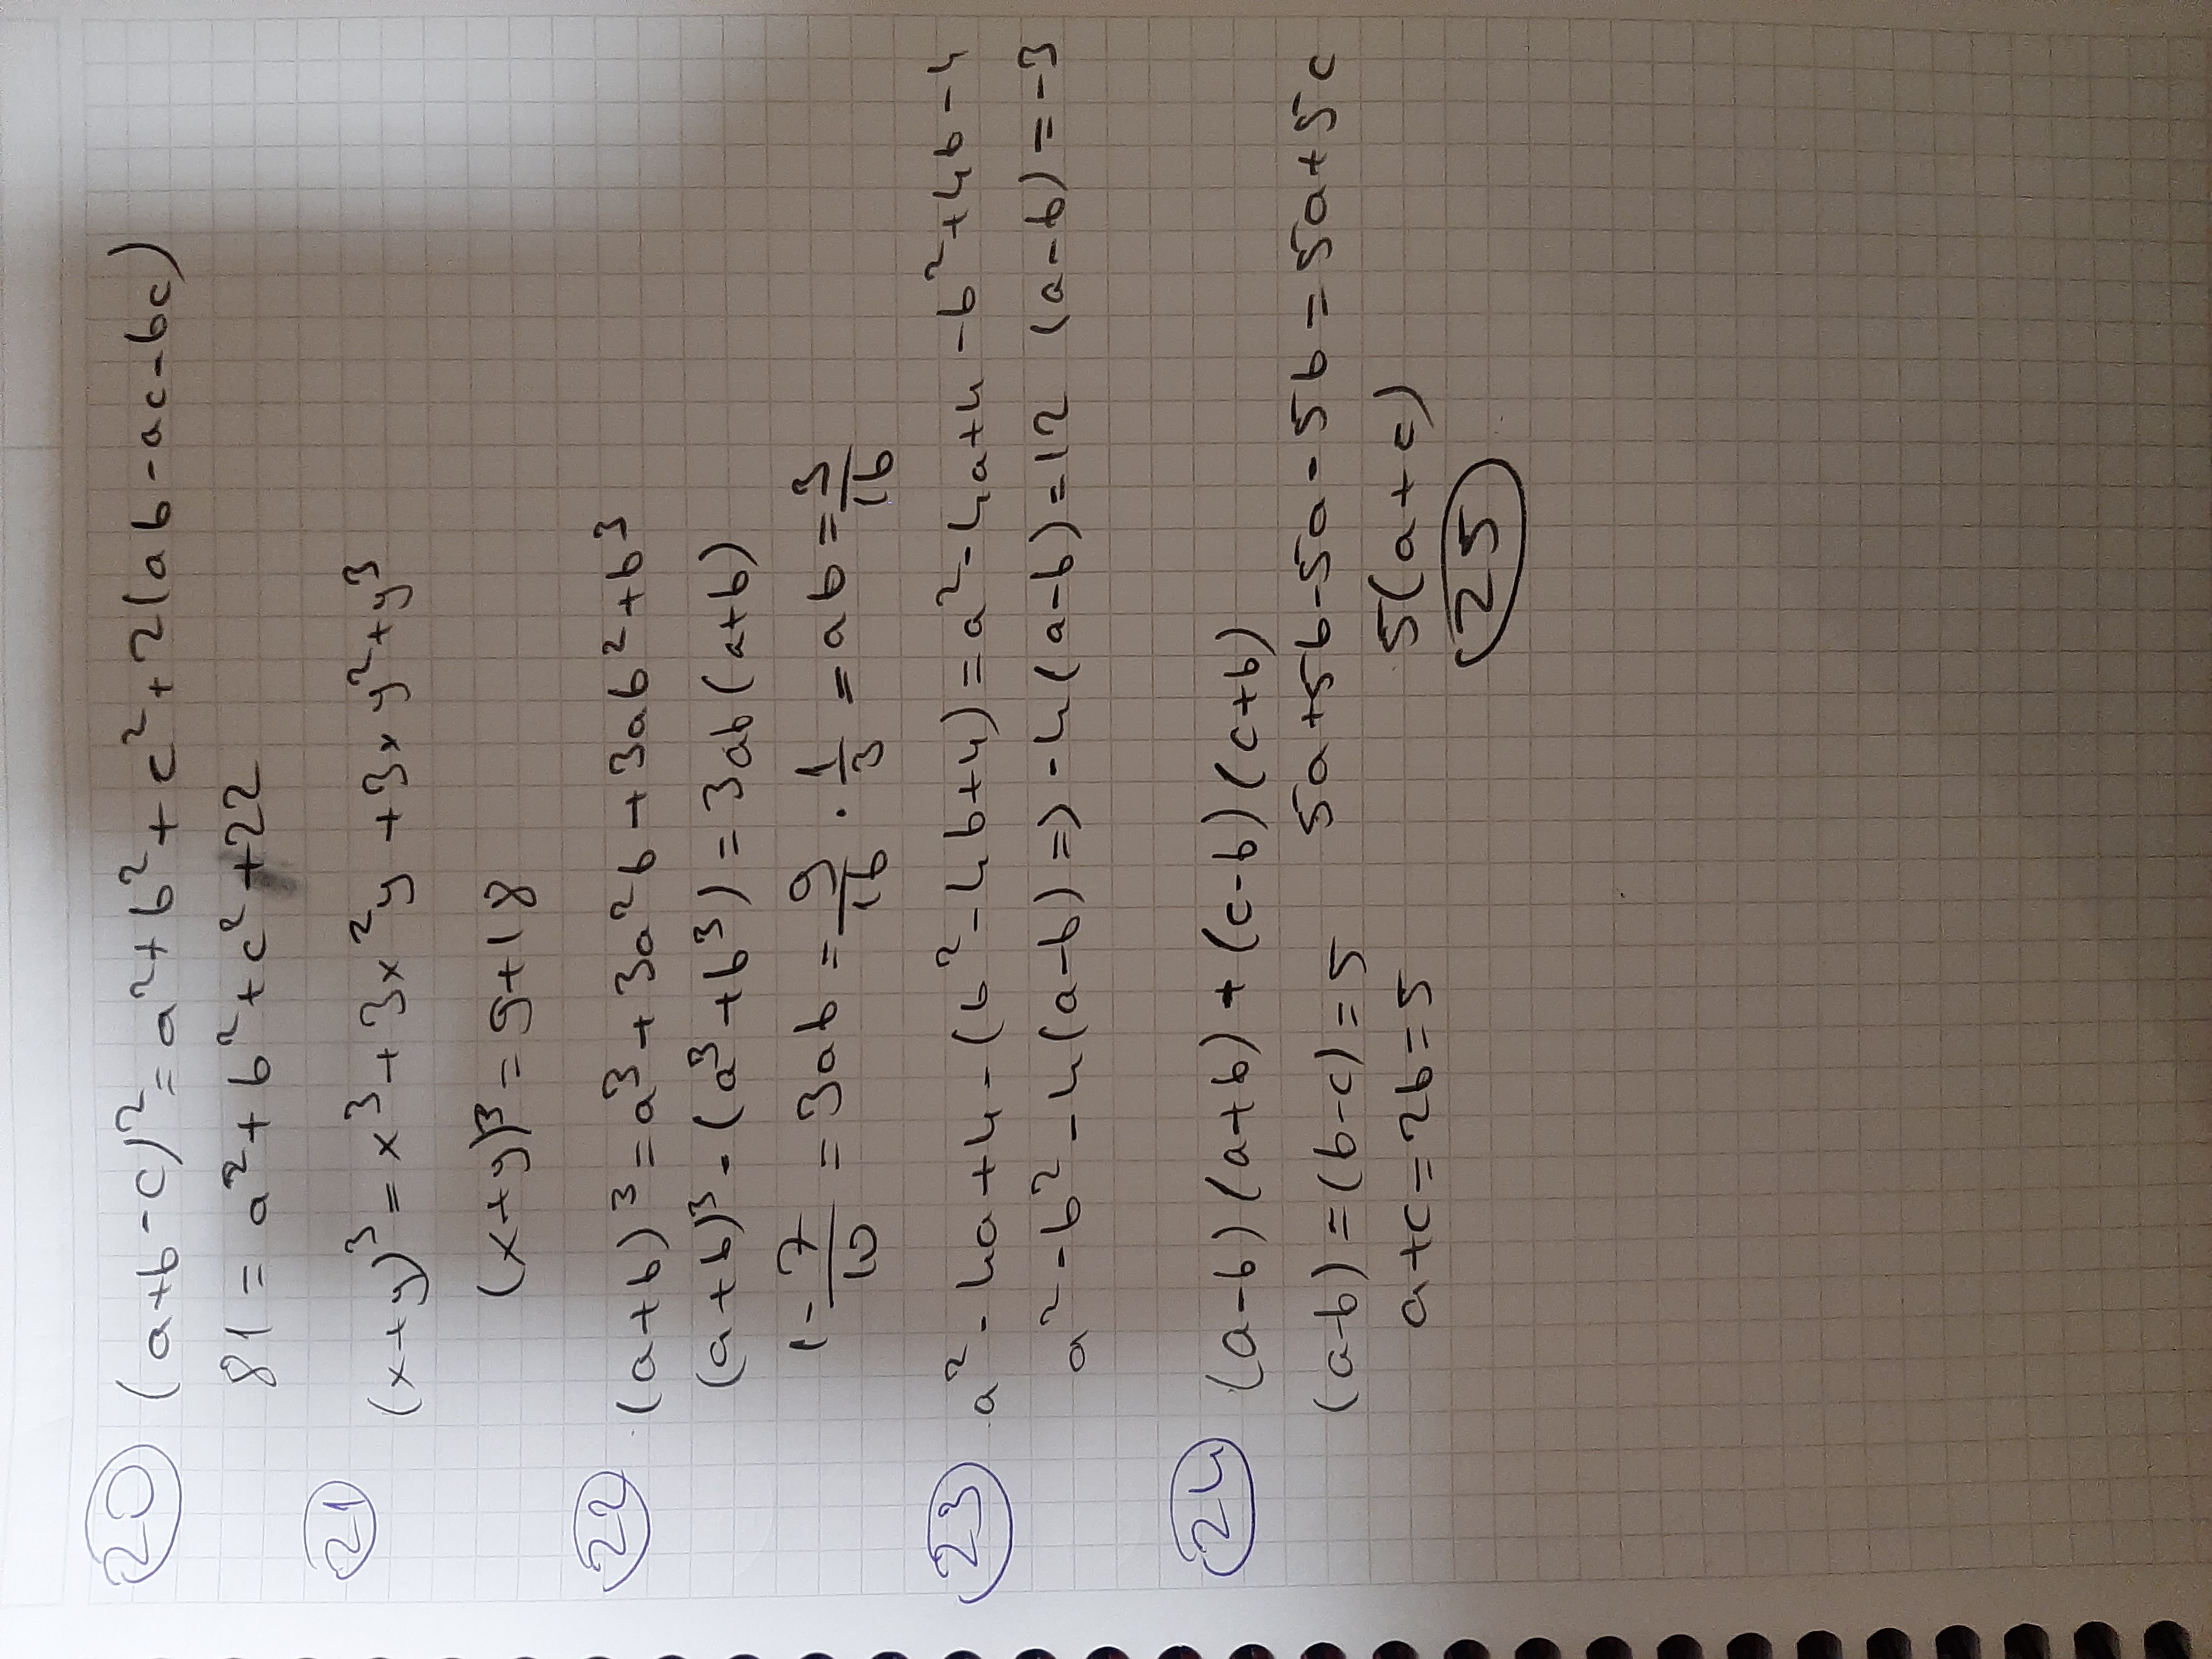 20 (a+b-c)² = a²+b²+c²+2(ab-ac-bc)
81 = a²+b²+c²+22
21
(x+y)³ = x³+3x²y+3xy²+y³
(x+y)³ = 9+18
22 (a+b)³ = a³+3a²b+3ab²+b³
(a+b)³-(a³+b³) = 3ab(a+b)
1-7/10 = 3ab = 9/16 · 1/3 = ab = 3/16
23 a²-4a+4-(b²-4b+4) = a²-4a+4-b²+4b-4
a²-b²-4(a-b) => -4(a-b) = 12 (a-b) = -3
24 (a-b)(a+b)+(c-b)(c+b)
(a-b) = (b-c) = 5 5a+5b-5a-5b = 5a+5c
a+c = 2b = 5 5(a+c)
25